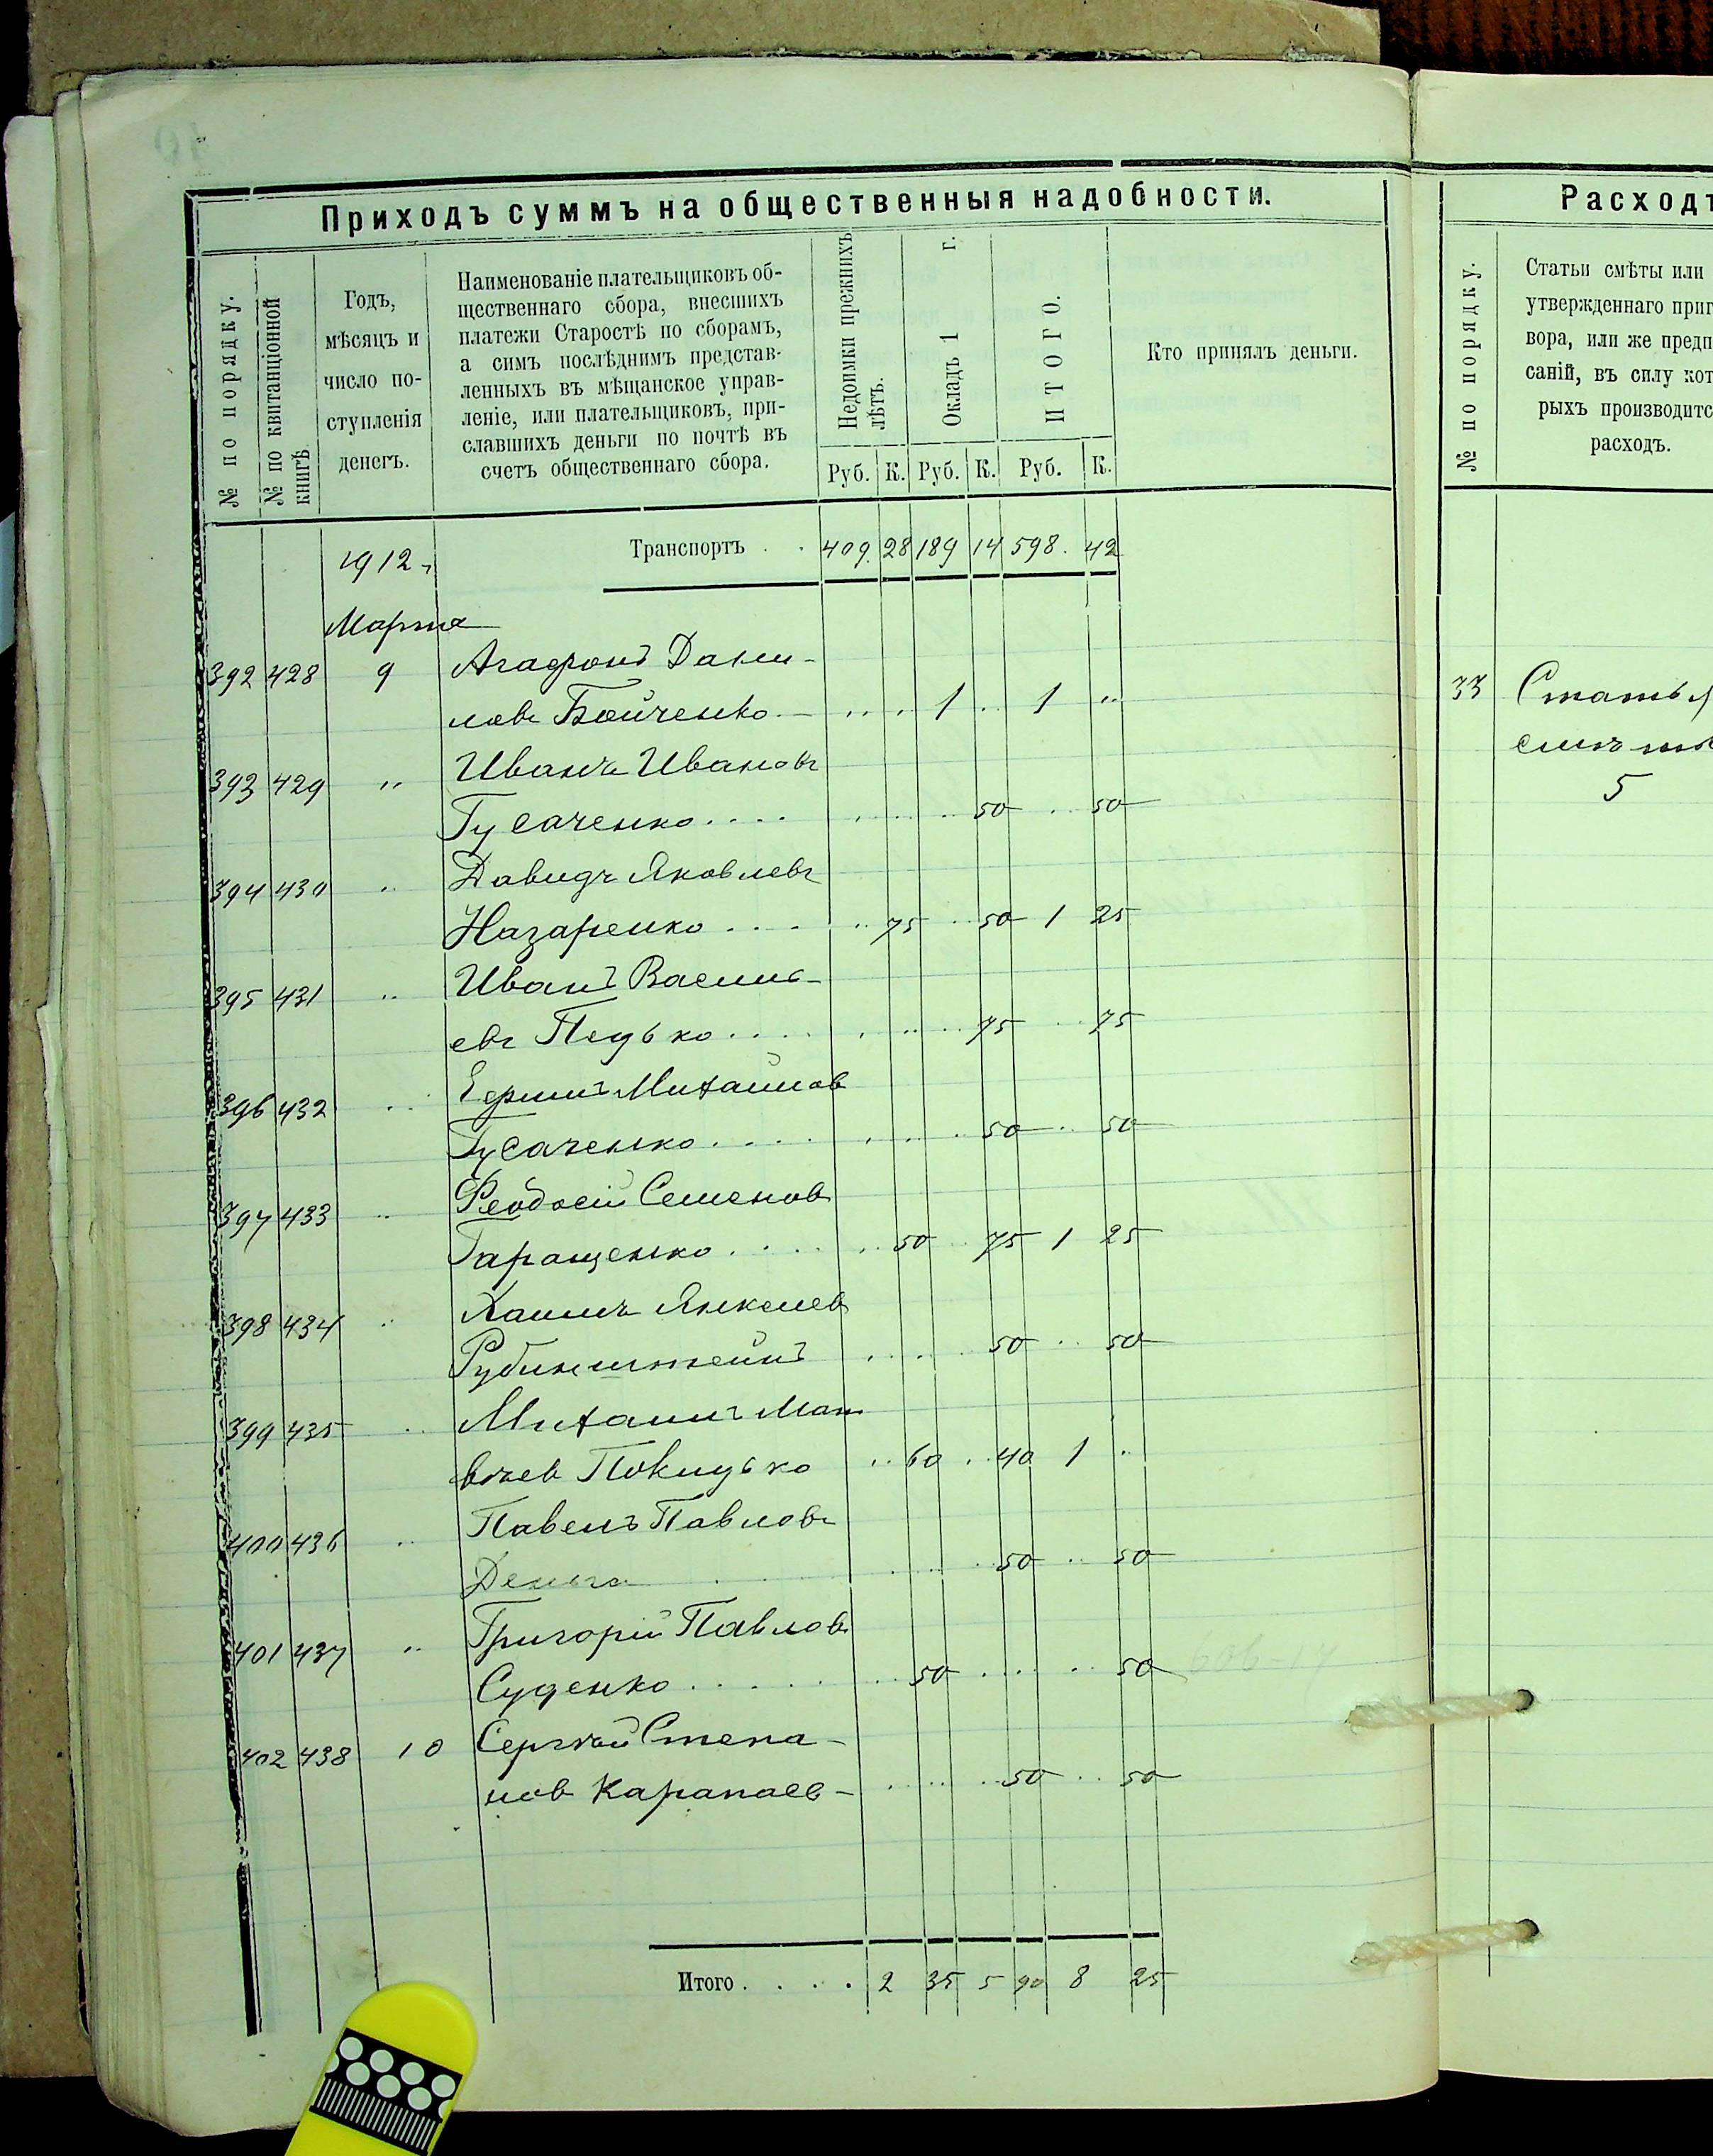 Приходъ суммъ на общественныя надобности.
№ по порядку.
№ по квитанціонной книгѣ
Годъ,
мѣсяцъ и
число по-
ступленія
денегъ.
Наименованіе плательщиковъ об-
щественнаго сбора, внесшихъ
платежи Старостѣ по сборамъ,
а симъ послѣднимъ представ-
ленныхъ въ мѣщанское управ-
леніе, или плательщиковъ, при-
славшихъ деньги по почтѣ въ
счетъ общественнаго сбора.
Недоимки прежнихъ лѣтъ.
Окладъ 1 г.
ИТОГО.
Кто принялъ деньги.
Руб. К. Руб. К. Руб. К.
1912 г. Транспортъ . . 409. 28 189 14 598. 42
Марта
392 428 9 Агафонъ Дани-
ловъ Бойченко.— .. . 1 .. 1 ..
393 429 " Иванъ Ивановъ
Гусаченко.... 50 50
394 430 " Давидъ Яковлевъ
Назаренко.... 75 50 1 25
395 431 " Иванъ Василь-
евъ Педько.... 75 75
396 432 " Ефимъ Михайлов
Гусаченко.... 50 50
397 433 " Феодосій Семенов
Гаращенко.... 50 75 1 25
398 434 " Хаимъ Янкелев
Рубинштейнъ 50 50
399 435 " Михаилъ Мат
вѣев 60 40 1 ..
400 436 " Павелъ Павловъ
50 50
401 437 " Григорій Павлов
Суденко...... 50 50
402 438 10 Сергѣй Степа-
нов Карапаев— 50 50
Итого.... 2 35 5 90 8 25
Расход
№ по порядку.
Статьи смѣты или
утвержденнаго приг
вора, или же предп
саній, въ силу кот
рыхъ производитс
расходъ.
33 Статья
смѣт
5